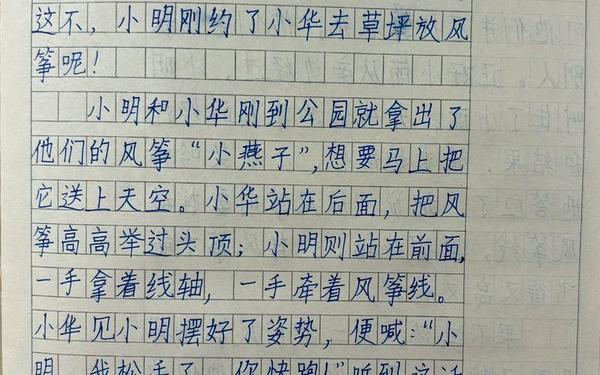 这不，小明刚约了小华去草坪放风
筝呢！
小明和小华刚到公园就拿出了
他们的风筝“小燕子”，想要马上把
它送上天空。小华站在后面，把风
筝高高举过头顶；小明则站在前面，
一手拿着线轴，一手牵着风筝线。
小华见小明摆好了姿势，便喊：“小
明，我松手了，你快跑！”听到这话